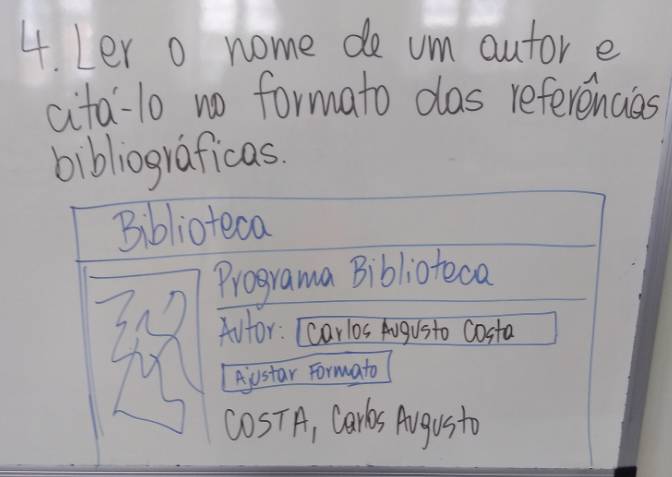 4. Ler o nome de um autor e
citá-lo no formato das referências
bibliográficas.
Biblioteca
Programa Biblioteca
Autor: Carlos Augusto Costa
Ajustar Formato
COSTA, Carlos Augusto